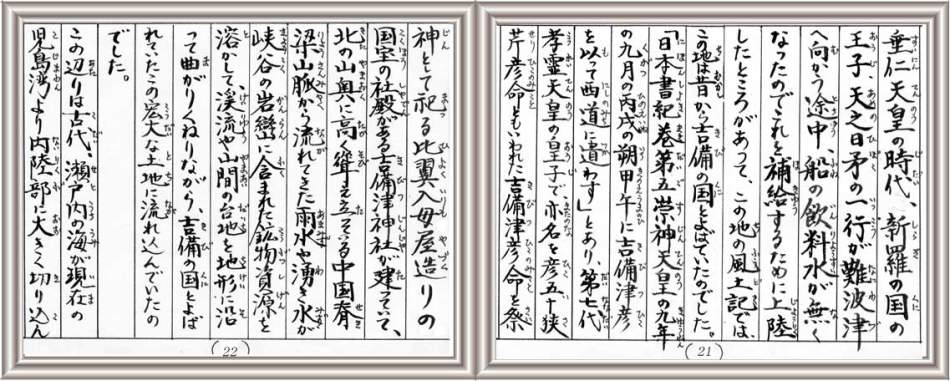 垂仁天皇の時代、新羅の国の
王子、天之日矛の一行が難波津
へ向かう途中、船の飲料水が無く
なったのでこれを補給するために上陸
したところがあって、この地の風土記では、
この地は昔から吉備の国とよばていたのでした。
「日本書紀巻第五崇神天皇の九年
の九月の丙戌の朔甲午に吉備津彦
を以って西道に遣わす」とあり、第七代
孝霊天皇の皇子で亦名を彦五十狭
芹彦命ともいわれた吉備津彦命を祭
(21)
神として祀る比翼入母屋造りの
国宝の社殿がある吉備津神社が建っていて、
北の山奥に高く聳え立っている中国脊
梁山脈から流れてきた雨水や湧き水が
峡谷の岩巒に含まれた鉱物資源を
溶かして、渓流や山間の台地を地形に沿
って曲がりくねりながら、吉備の国とよば
れていたこの宏大な土地に流れ込んでいたの
でした。
この辺りは古代、瀬戸内の海が現在の
児島湾より内陸部に大きく切り込ん
(22)